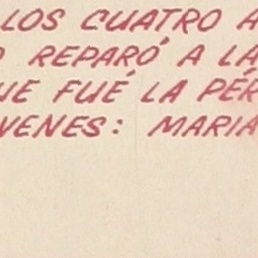 LOS CUATRO A
O REPARÓ A LA
UE FUÉ LA PÉR
VENES: MARIA